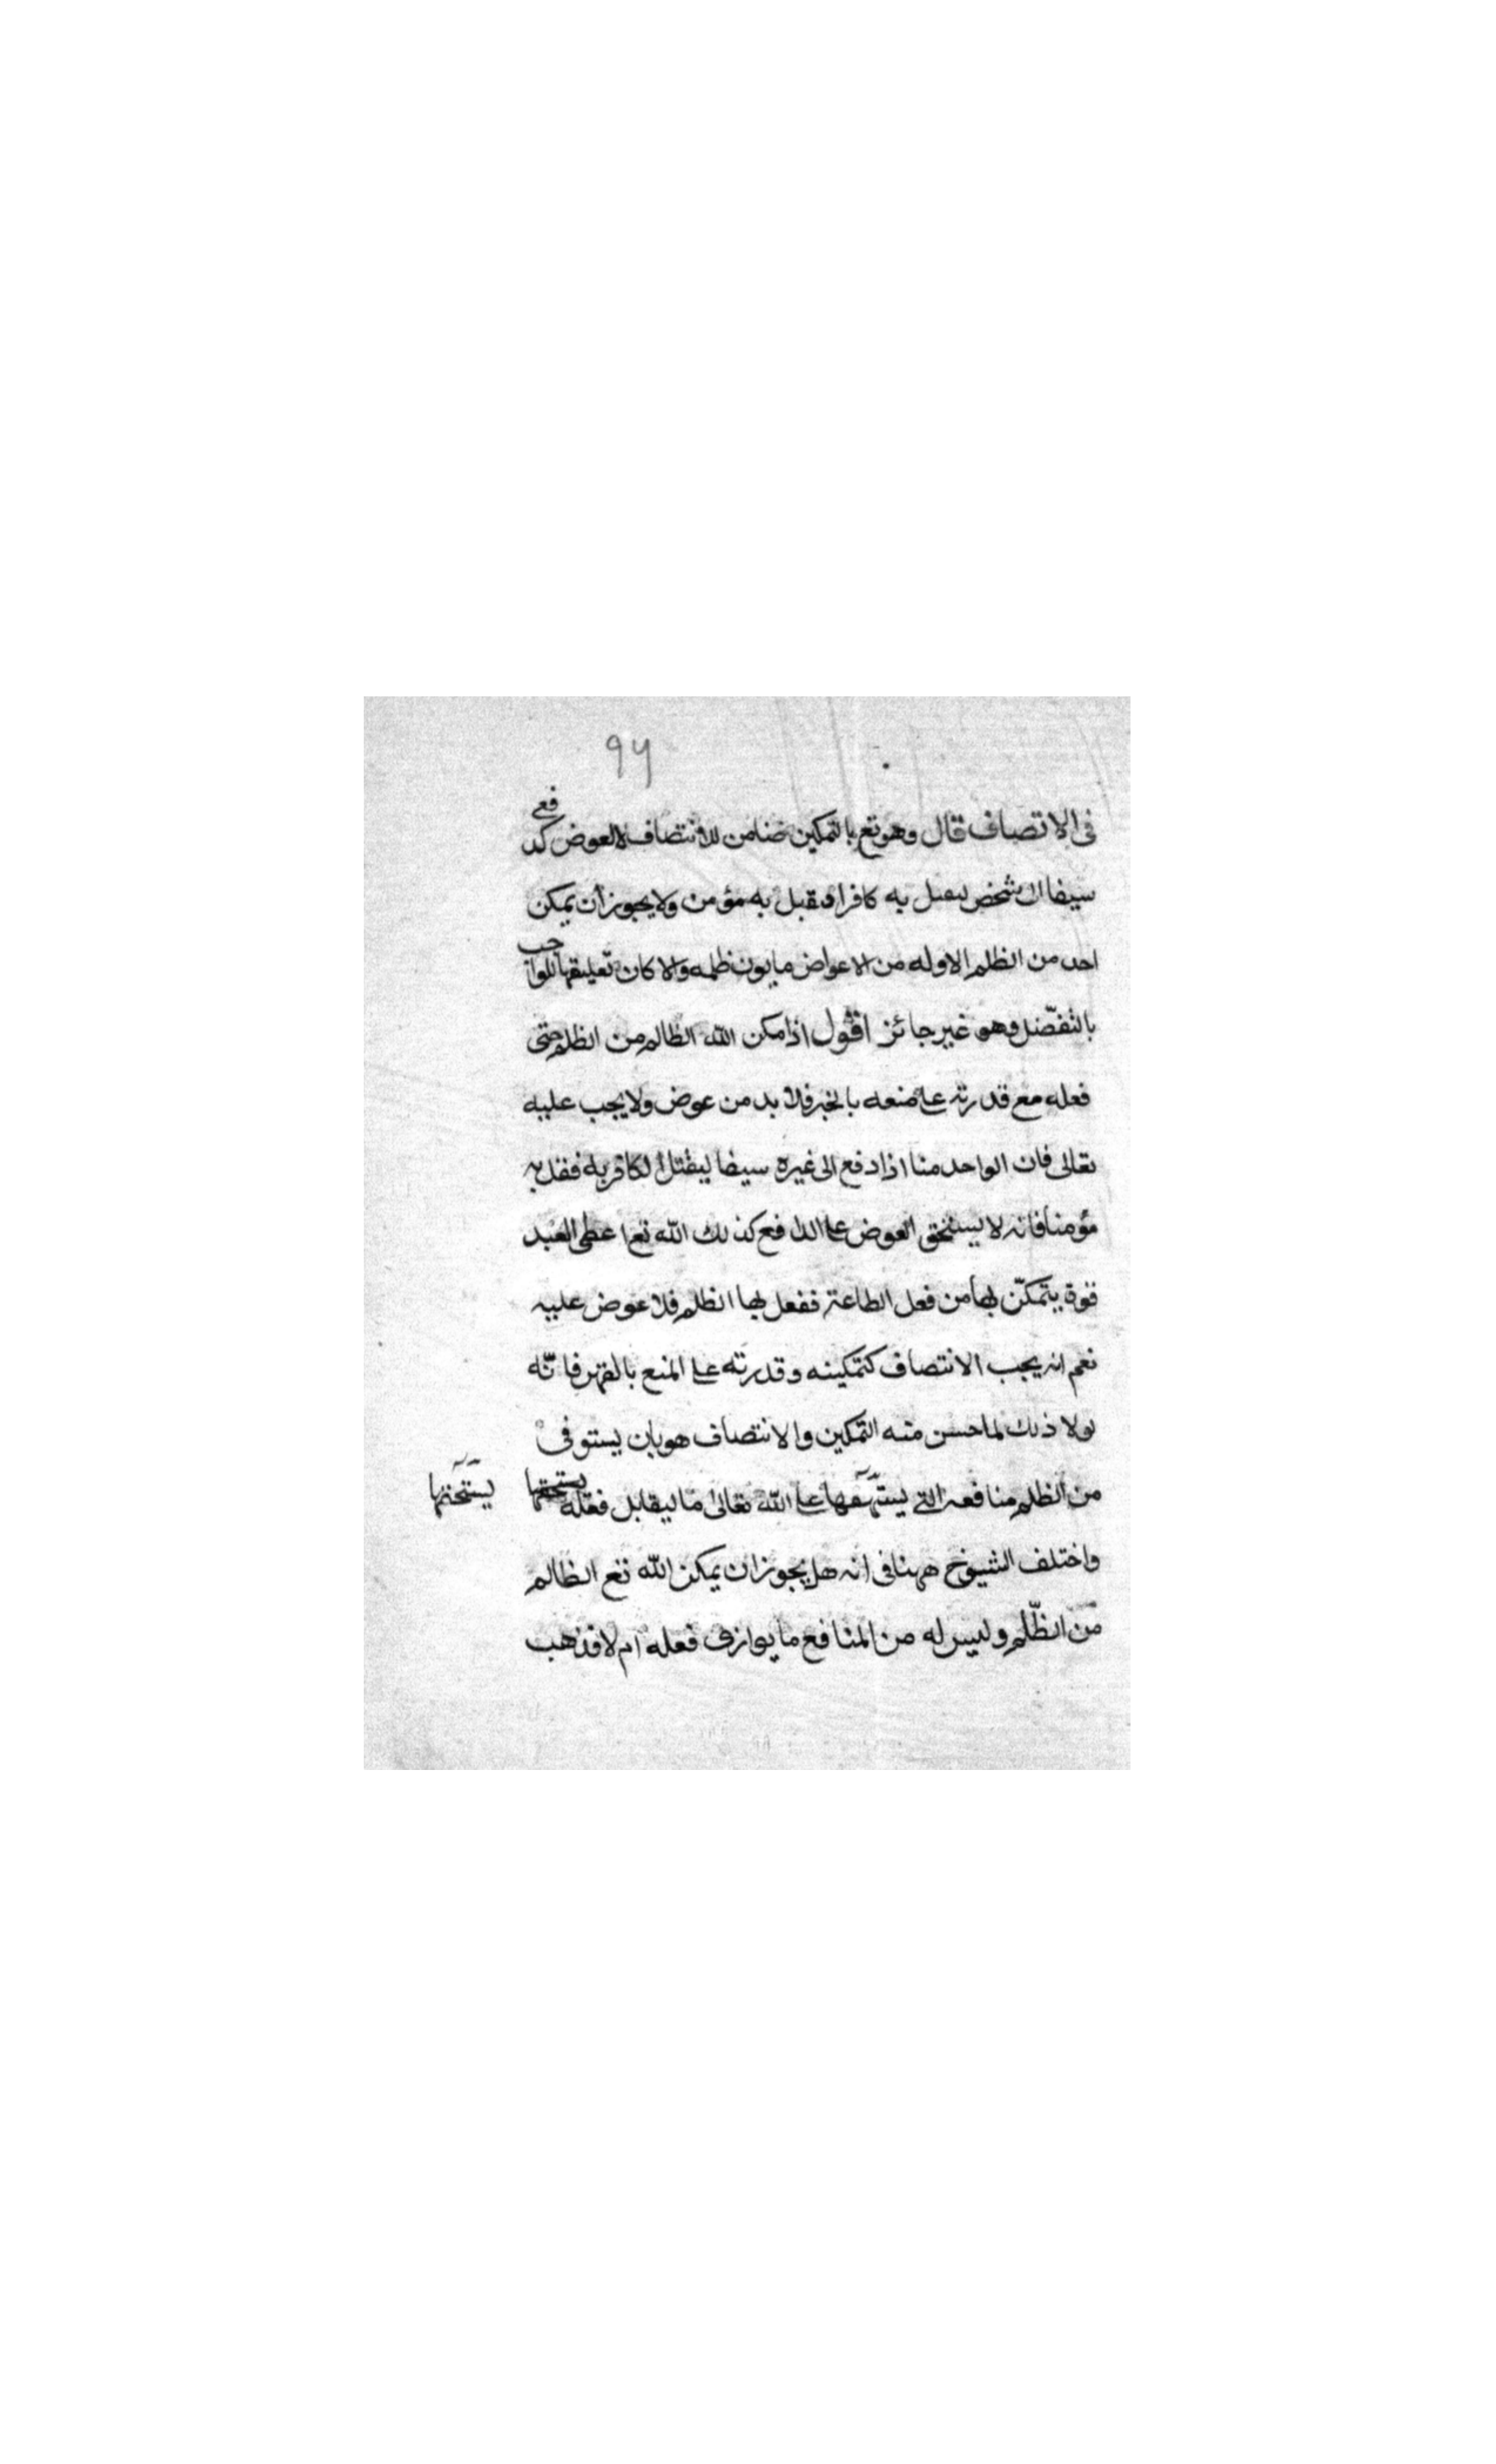 ۹۶
فى الاتصاف قال وهو تع بالتمكين ضامن للانتصاف لا العوض كدفع
سيفا الى شخص ليقتل به كافرا فقتل به مؤمن ولا يجوز أن يمكن
احد من الظلم الا وله من الاعواض ما يون ظلمه والا كان تعليقها للواجب
بالتفضّل وهو غير جائز اقول اذا مكن الله الظالم من الظلم حتى
فعله مع قدرته على منعه بالخبر فلا بد من عوض ولا يجب عليه
تعالى فان الواحد منا اذا دفع الى غيره سيفا ليقتل الكافر به فقتل به
مؤمنا فانه لا يستحق العوض على الدافع كذلك الله تع اعطى العبد
قوة يتمكّن بها من فعل الطاعة ففعل بها الظلم فلا عوض عليه
نعم انه يجب الانتصاف كتمكينه وقدرته على المنع بالقهر فانّه
لولا ذلك لما حسن منه التمكين والانتصاف هو بان يستوفى
من الظلم منافعه التى يستحقها على الله تعالى ما ليقابل فعله يستحقها
يستحقها
واختلف الشيوخ ههنا فى انه هل يجوز ان يمكن الله تع الظالم
من الظّلم وليس له من المنافع ما يوازى فعله ام لا فذهب